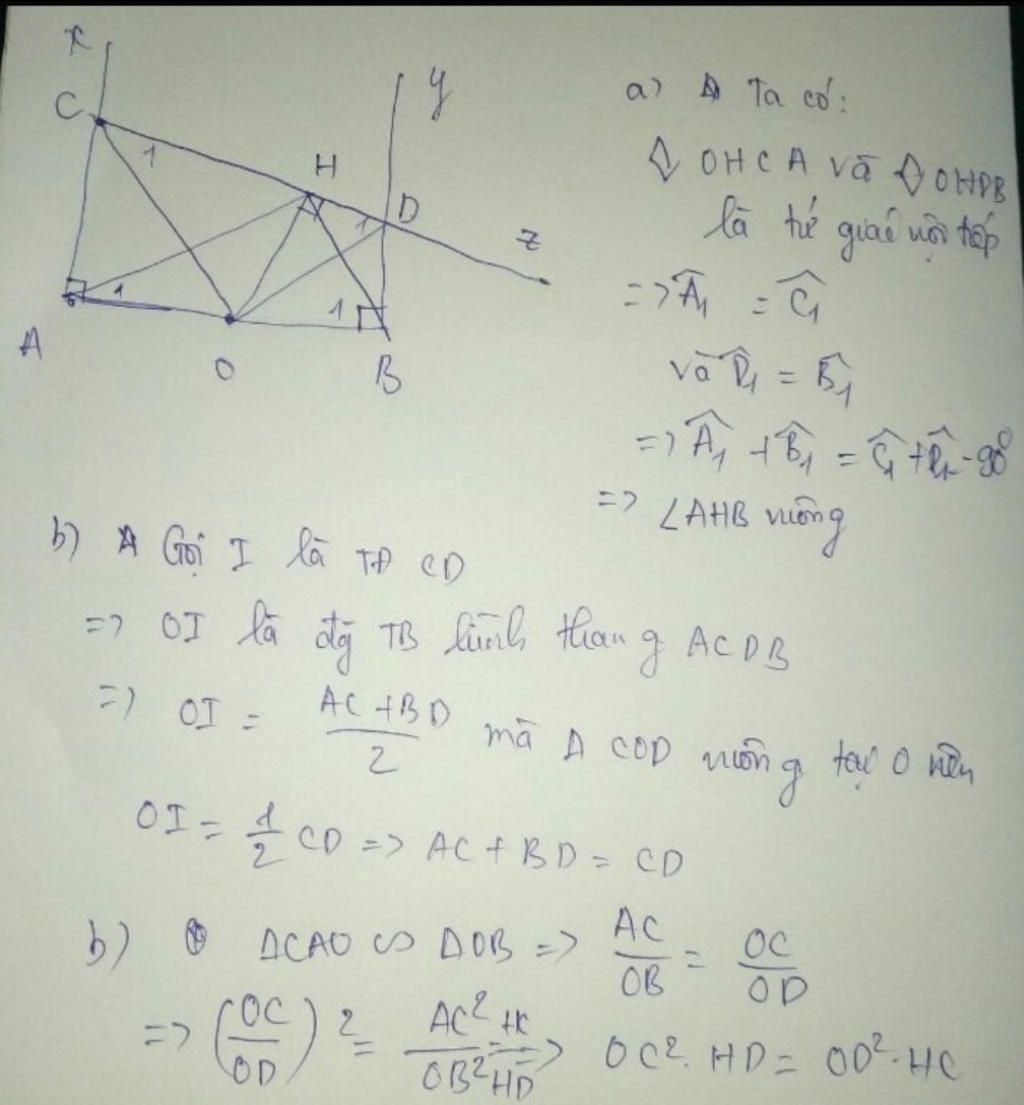 x
y
C
1
H
D
1
z
1
1
A
O
B
a) Ta có:
◊ OHCA và ◊ OHDB
là tứ giác nội tiếp
=> Â₁ = Ĉ₁
và D̂₁ = B̂₁
=> Â₁ + B̂₁ = Ĉ₁ + D̂₁ = 90⁰
=> ∠AHB vuông
b) Gọi I là TĐ CD
=> OI là đg TB hình thang ACDB
=> OI = (AC + BD)/2 mà Δ COD vuông tại O nên
OI = 1/2 CD => AC + BD = CD
b) ΔCAO ∽ ΔOB => AC/OB = OC/OD
=> (OC/OD)² = AC²/OB² = HC/HD => OC². HD = OD². HC